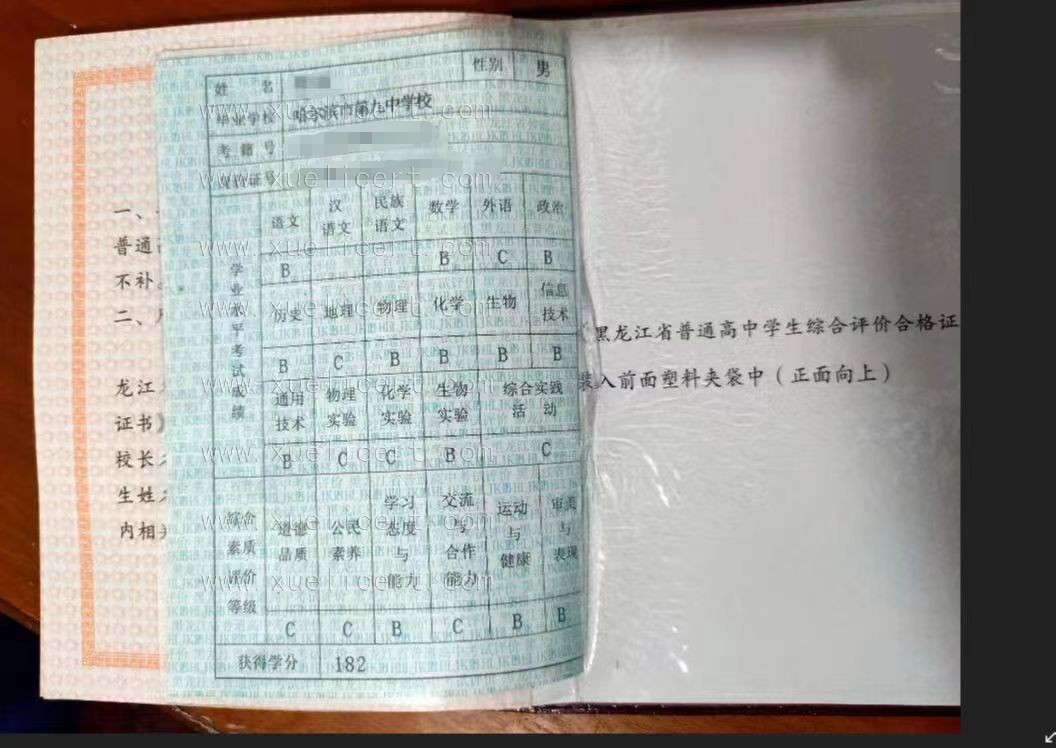 一、
普通
不补。
二、
龙江
证书》
校长
生姓
内相关
姓 名 性别 男
毕业学校 哈尔滨市第九中学校
考籍号
身份证号
学业水平考试成绩
语文 汉语文 民族语文 数学 外语 政治
B B C B
历史 地理 物理 化学 生物 信息技术
B C B B B B
通用技术 物理实验 化学实验 生物实验 综合实践活动
B C C B C
综合素质评价等级
道德品质 公民素养 学习态度与能力 交流与合作能力 运动与健康 审美与表现
C C B C B B
获得学分 182
黑龙江省普通高中学生综合评价合格证
装入前面塑料夹袋中（正面向上）
www.xuelicert.com